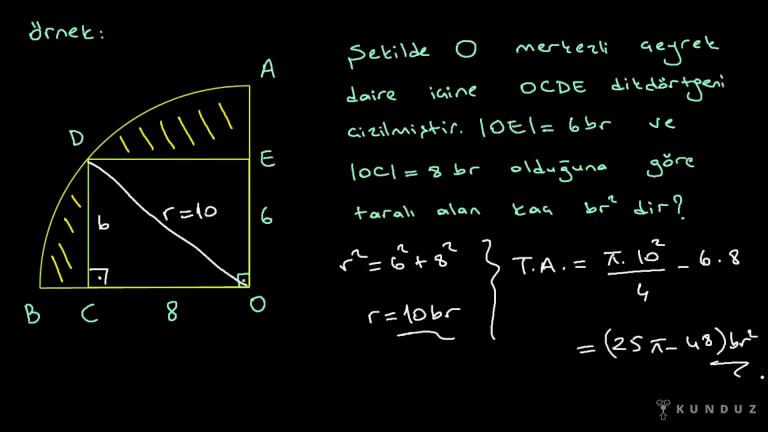 Örnek:
Şekilde O merkezli çeyrek
daire içine OCDE dikdörtgeni
çizilmiştir. |OE| = 6br ve
|OC| = 8 br olduğuna göre
taralı alan kaç br² dir?
A
D
E
r=10
6
6
B C 8 O
r² = 6² + 8²
r = 10br
T.A. = π.10²/4 - 6.8
= (25π - 48)br²
KUNDUZ